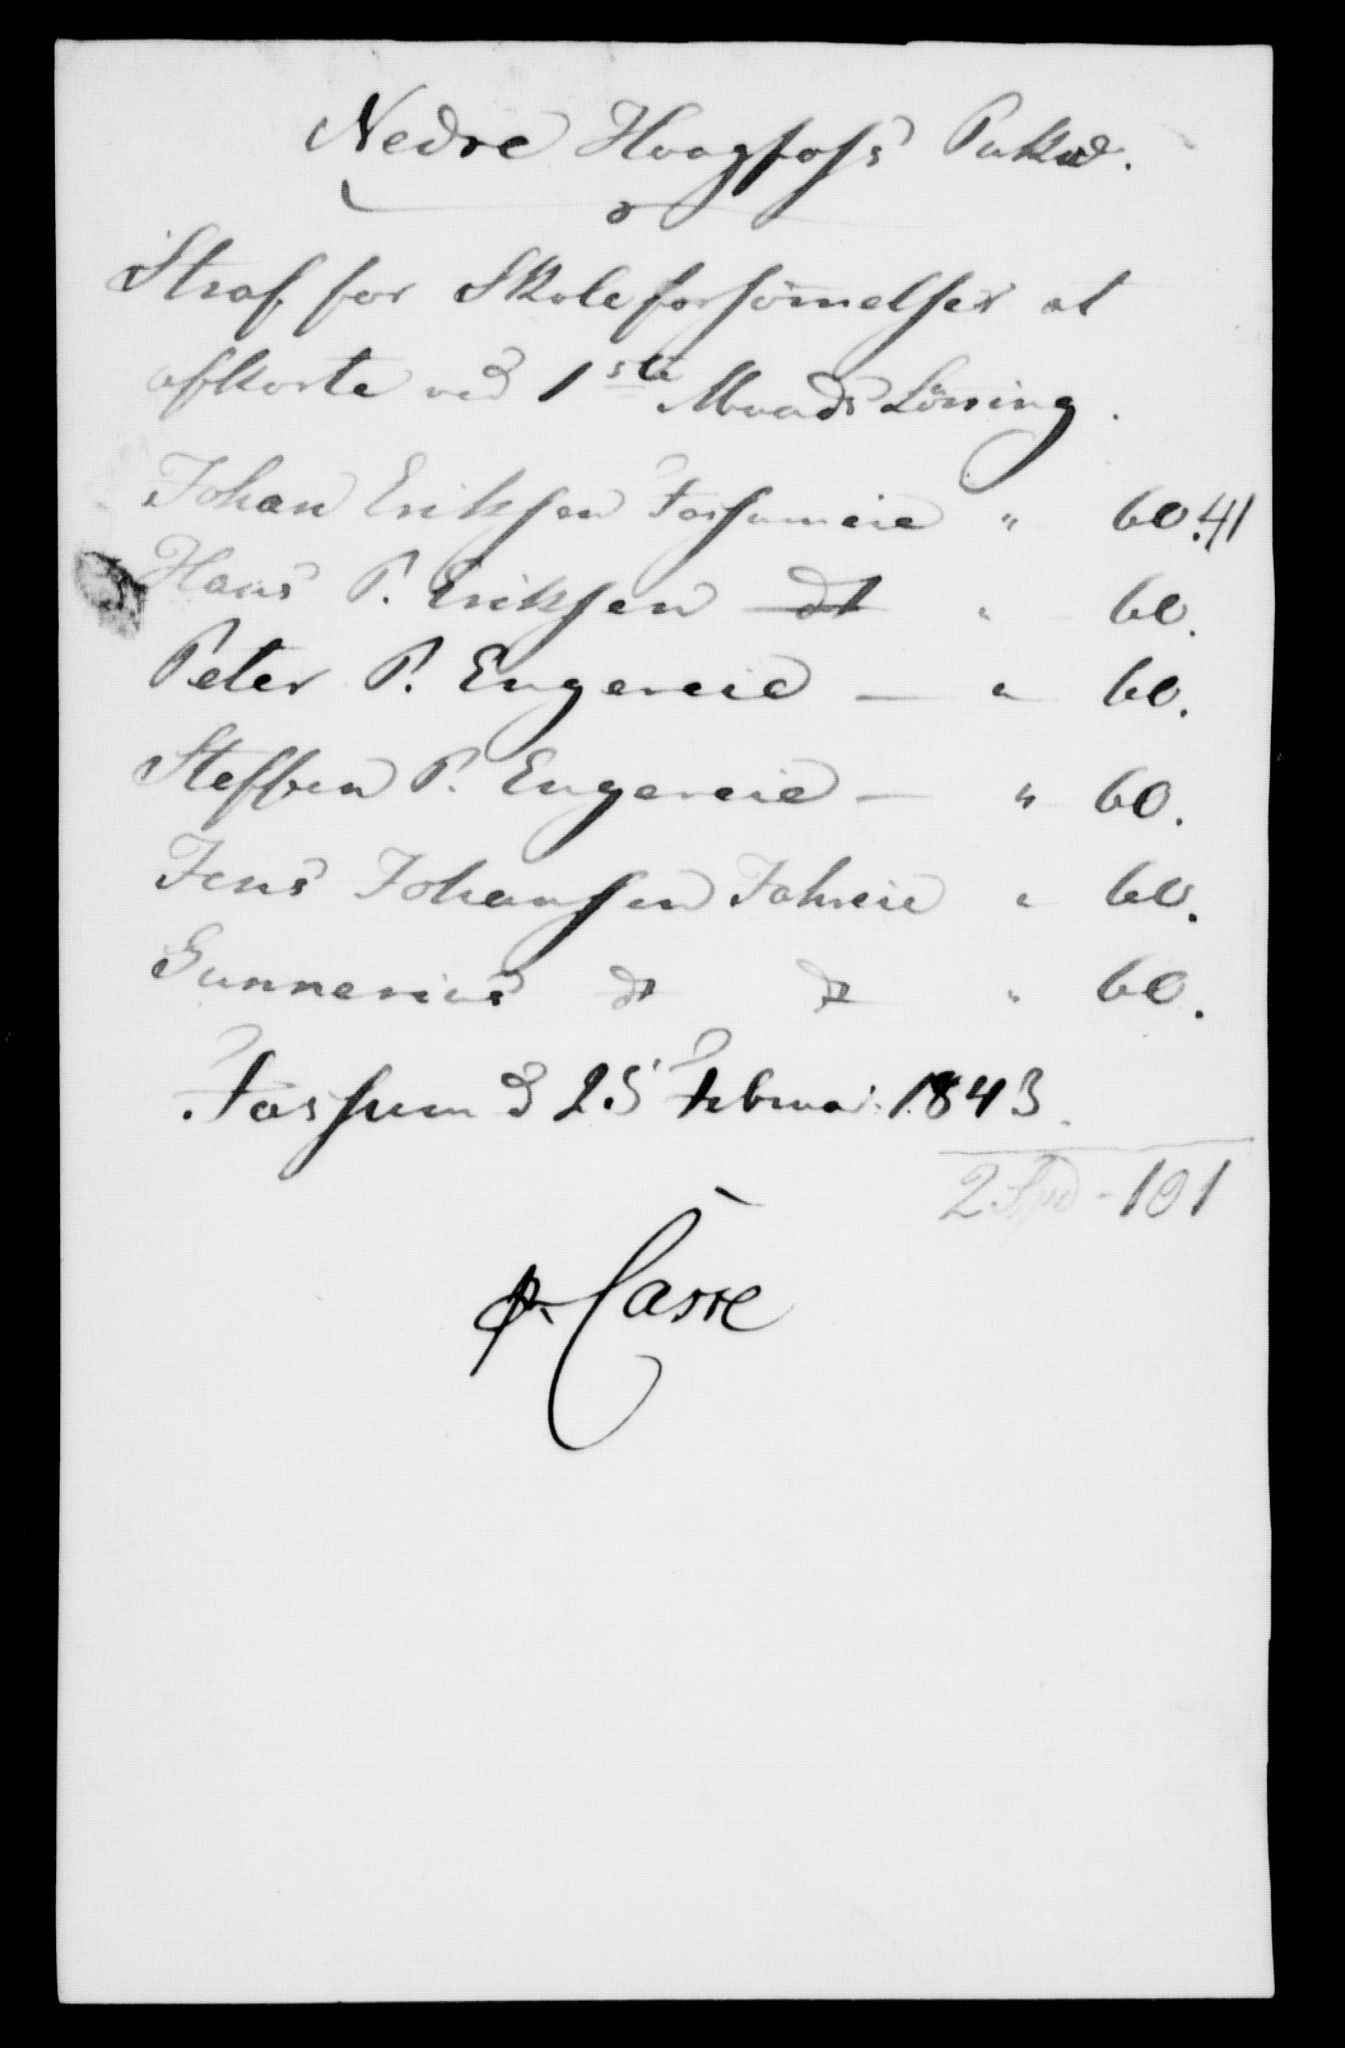 Nedre Haagfoss Pukv.
Straf for Skoleforsömmelser at
afkorte ved 1ste Maands Lönning.
Johan Eriksen Fossumeie " 60.41
Hans P. Eriksen dt " 60.
Peter P. Engereie — " 60.
Steffen P. Engereie — " 60.
Jens Johansen Johreie " 60.
Gunnerius dt dt " 60.
Fossum d 25 Februar 1843.
2 Spd - 101
Casse